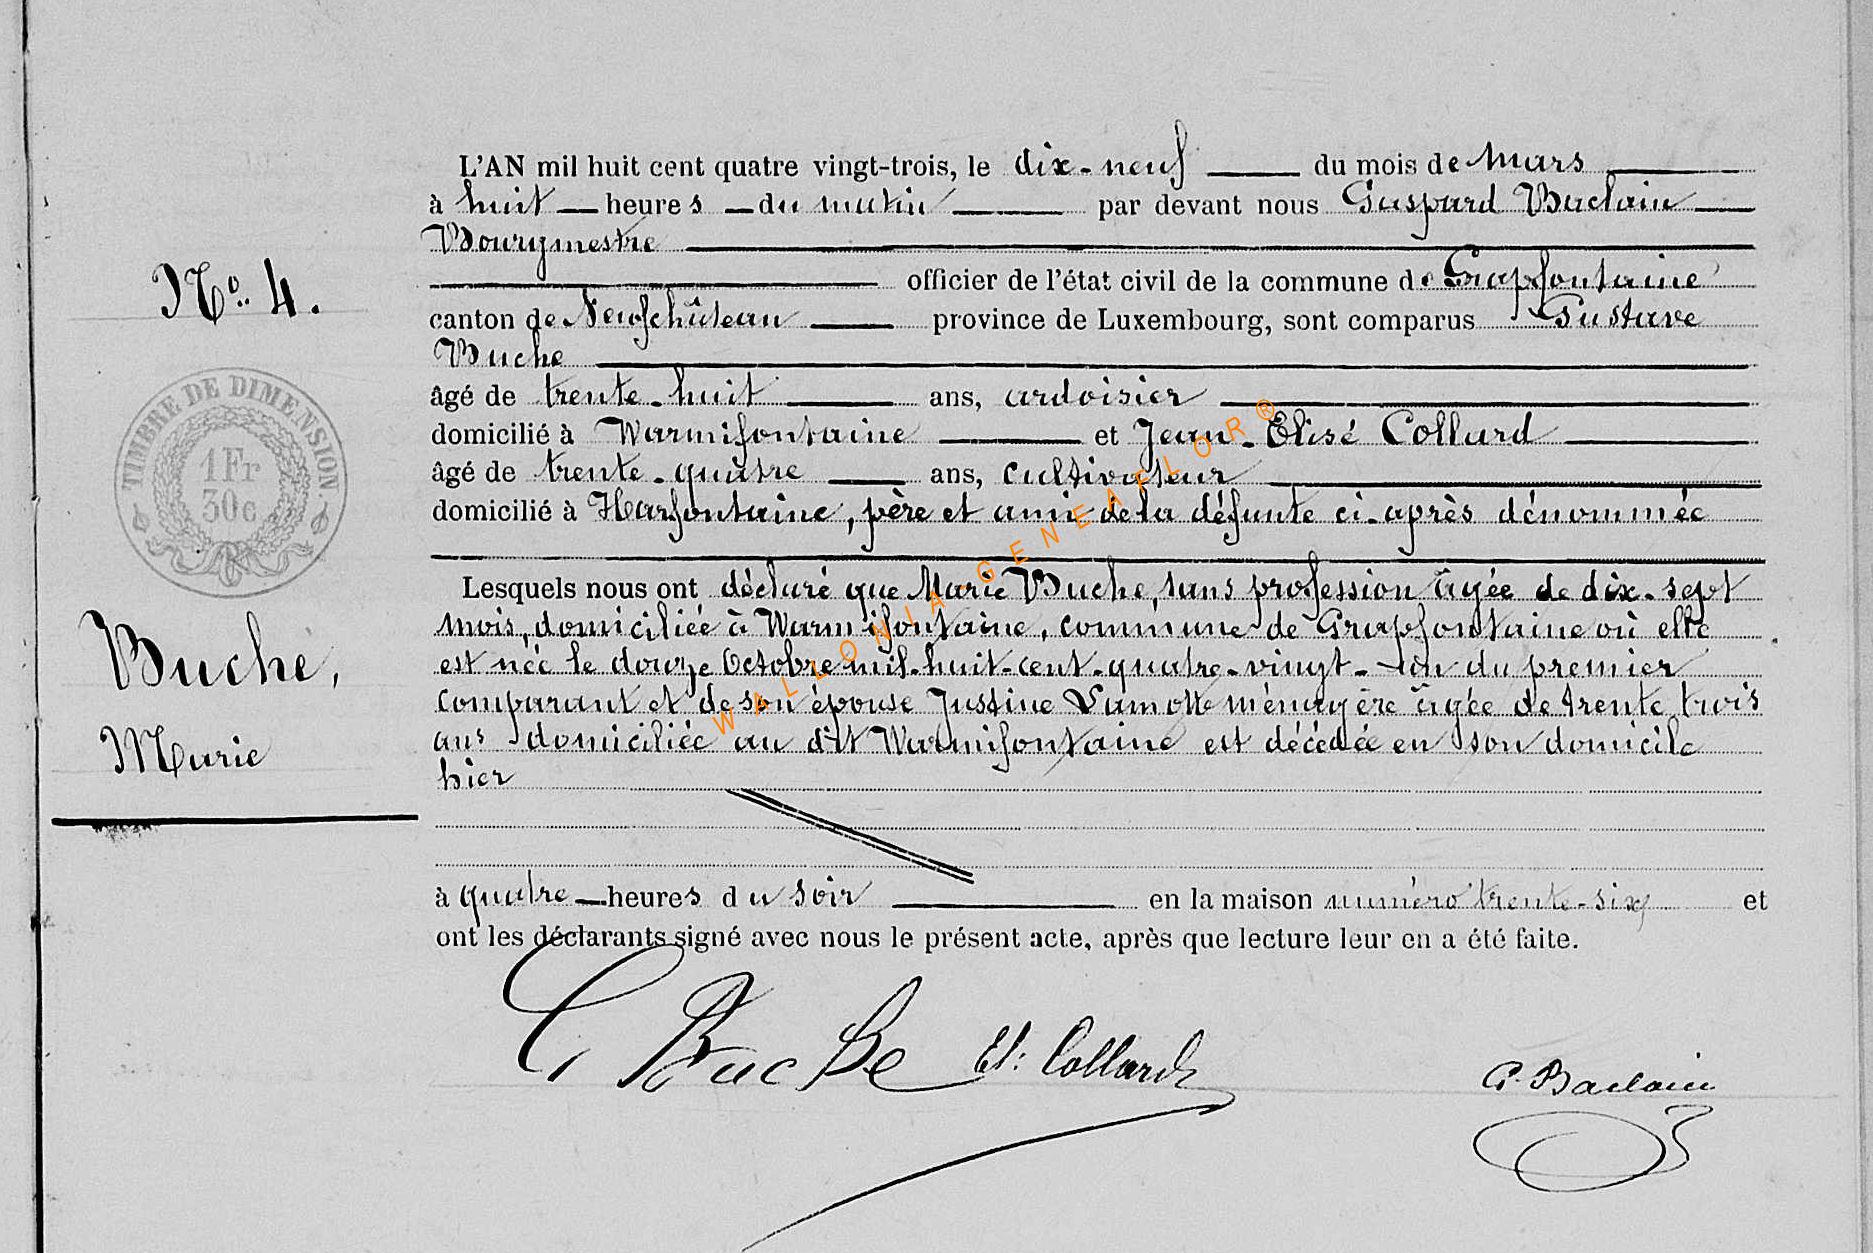 L'AN mil huit cent quatre vingt-trois, le dix-neuf du mois de Mars
à huit heures du matin par devant nous Gaspard Baclain
Bourgmestre
officier de l'état civil de la commune de Grapfontaine
canton de Neufchâteau province de Luxembourg, sont comparus Gustave
Buche
âgé de trente-huit ans, ardoisier
domicilié à Warmifontaine et Jean-Elisé Collard
âgé de trente-quatre ans, cultivateur
domicilié à Harfontaine, père et ami de la défunte ci-après dénommée
Lesquels nous ont déclaré que Marie Buche, sans profession âgée de dix-sept
mois, domiciliée à Warmifontaine, commune de Grapfontaine où elle
est née le douze Octobre mil-huit-cent-quatre-vingt-un du premier
comparant et de son épouse Justine Lamotte ménagère âgée de trente trois
ans domiciliée au dit Warmifontaine est décédée en son domicile
hier
à quatre heures du soir en la maison numéro trente-six et
ont les déclarants signé avec nous le présent acte, après que lecture leur en a été faite.
G Buche El: Collard
G. Baclain
No. 4.
TIMBRE DE DIMENSION.
1Fr
30c
Buche,
Marie
WALLONIA GENEAFLOR®